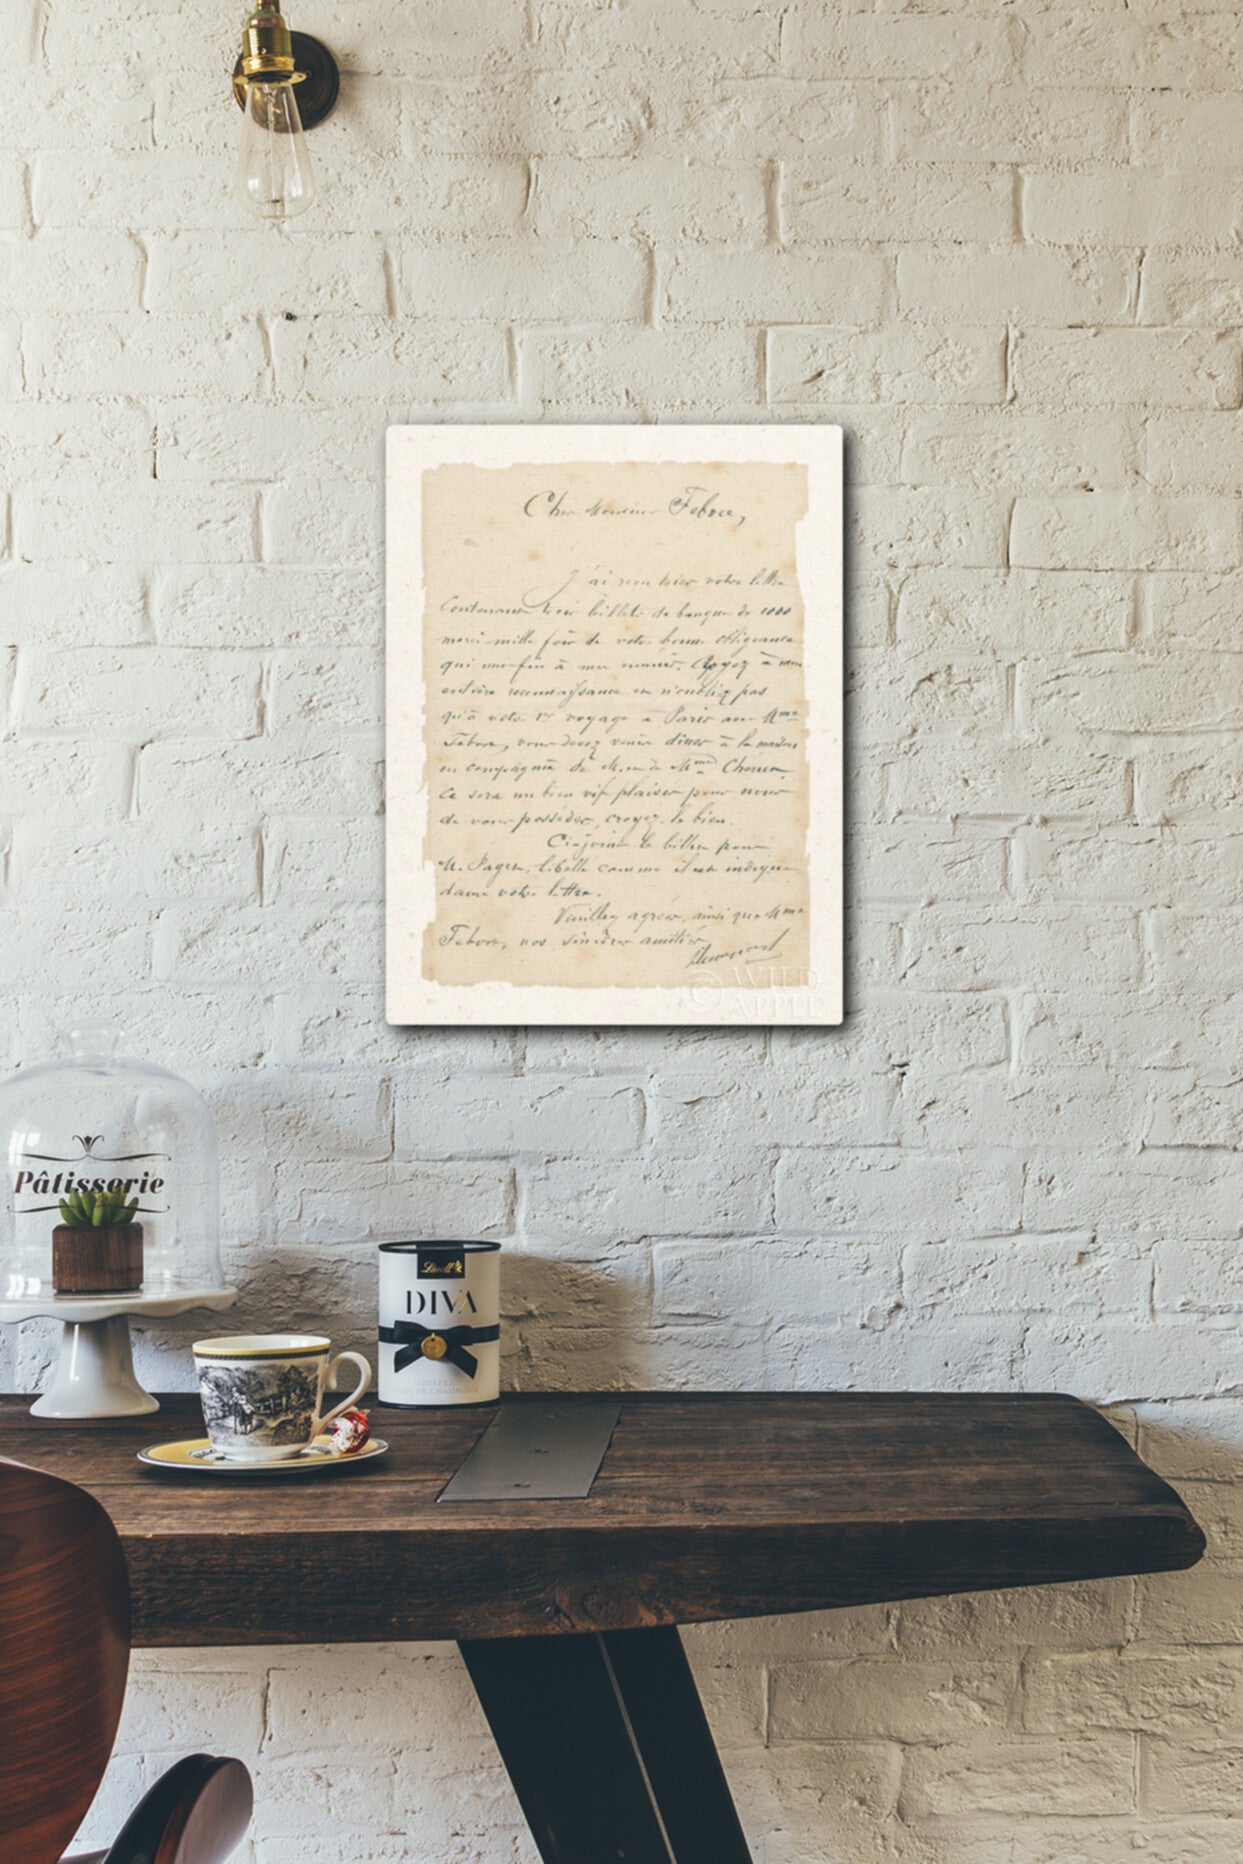 Cher Monsieur Febvre,
J'ai reçu hier votre lettre
Contenant trois billets de banque de 1000
merci mille fois de votre bonne obligeance
qui met fin à mes ennuis. Croyez à mon
entière reconnaissance et n'oubliez pas
qu'à votre 1er voyage à Paris avec Mme
Febvre, vous devez venir dîner à la maison
en compagnie de M. et de Mme
Ce sera un bien vif plaisir pour nous
de vous posséder, croyez le bien.
Ci-joint le billet pour
M. Pagen, libellé comme il est indiqué
dans votre lettre.
Veuillez agréer, ainsi que Mme
Febvre, nos sincères amitiés
© WILD
APPLE
Pâtisserie
Lindt
DIVA